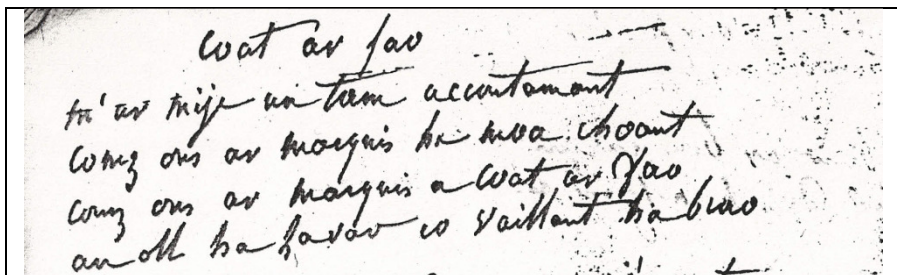 Coat ar fao
m' ar mije un tam accoutamant
comz ous ar marquis he moa choant
comz ous ar marquis a Coat ar fao
an oll ha lavar eo vaillant ha brao